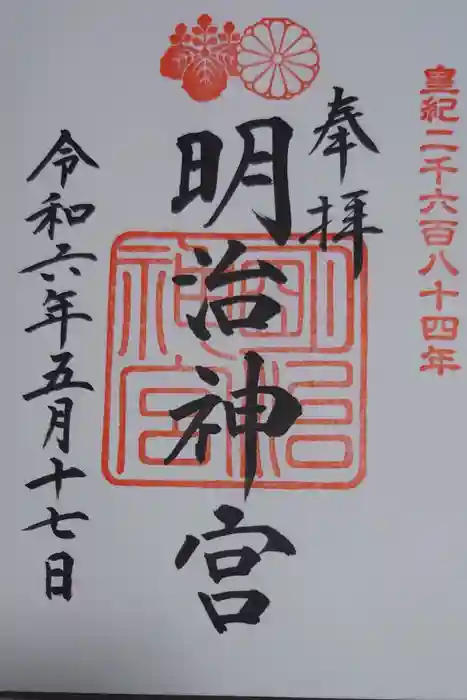 皇紀二千六百八十四年
奉拝
明治神宮
明治神宮
令和六年五月十七日